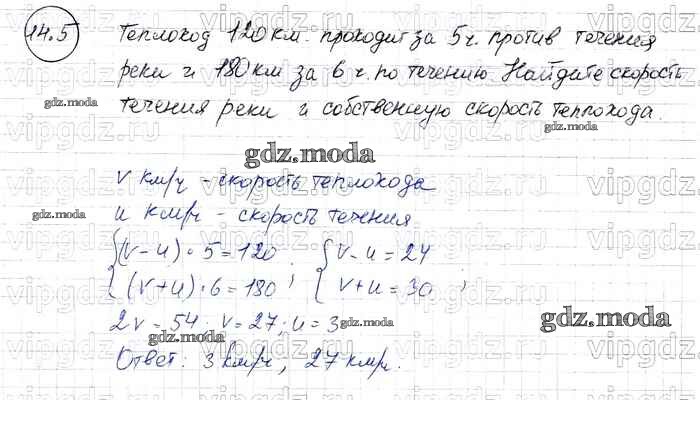 14.5 Теплоход 120 км. проходит за 5 ч. против течения
реки и 180 км за 6 ч. по течению. Найдите скорость
течения реки и собственную скорость теплохода.
gdz.moda
gdz.moda
gdz.moda
v км/ч - скорость теплохода
u км/ч - скорость течения
gdz.moda
{(v-u)·5=120 {v-u=24
{(v+u)·6=180; {v+u=30;
2v=54; v=27; u=3
gdz.moda
gdz.moda
gdz.moda
Ответ: 3 км/ч, 27 км/ч.